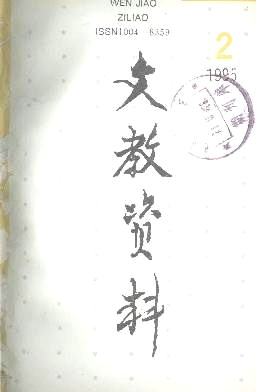 WEN JIAO
ZILIAO
ISSN1004-8359
2
1995
文
教
资
料